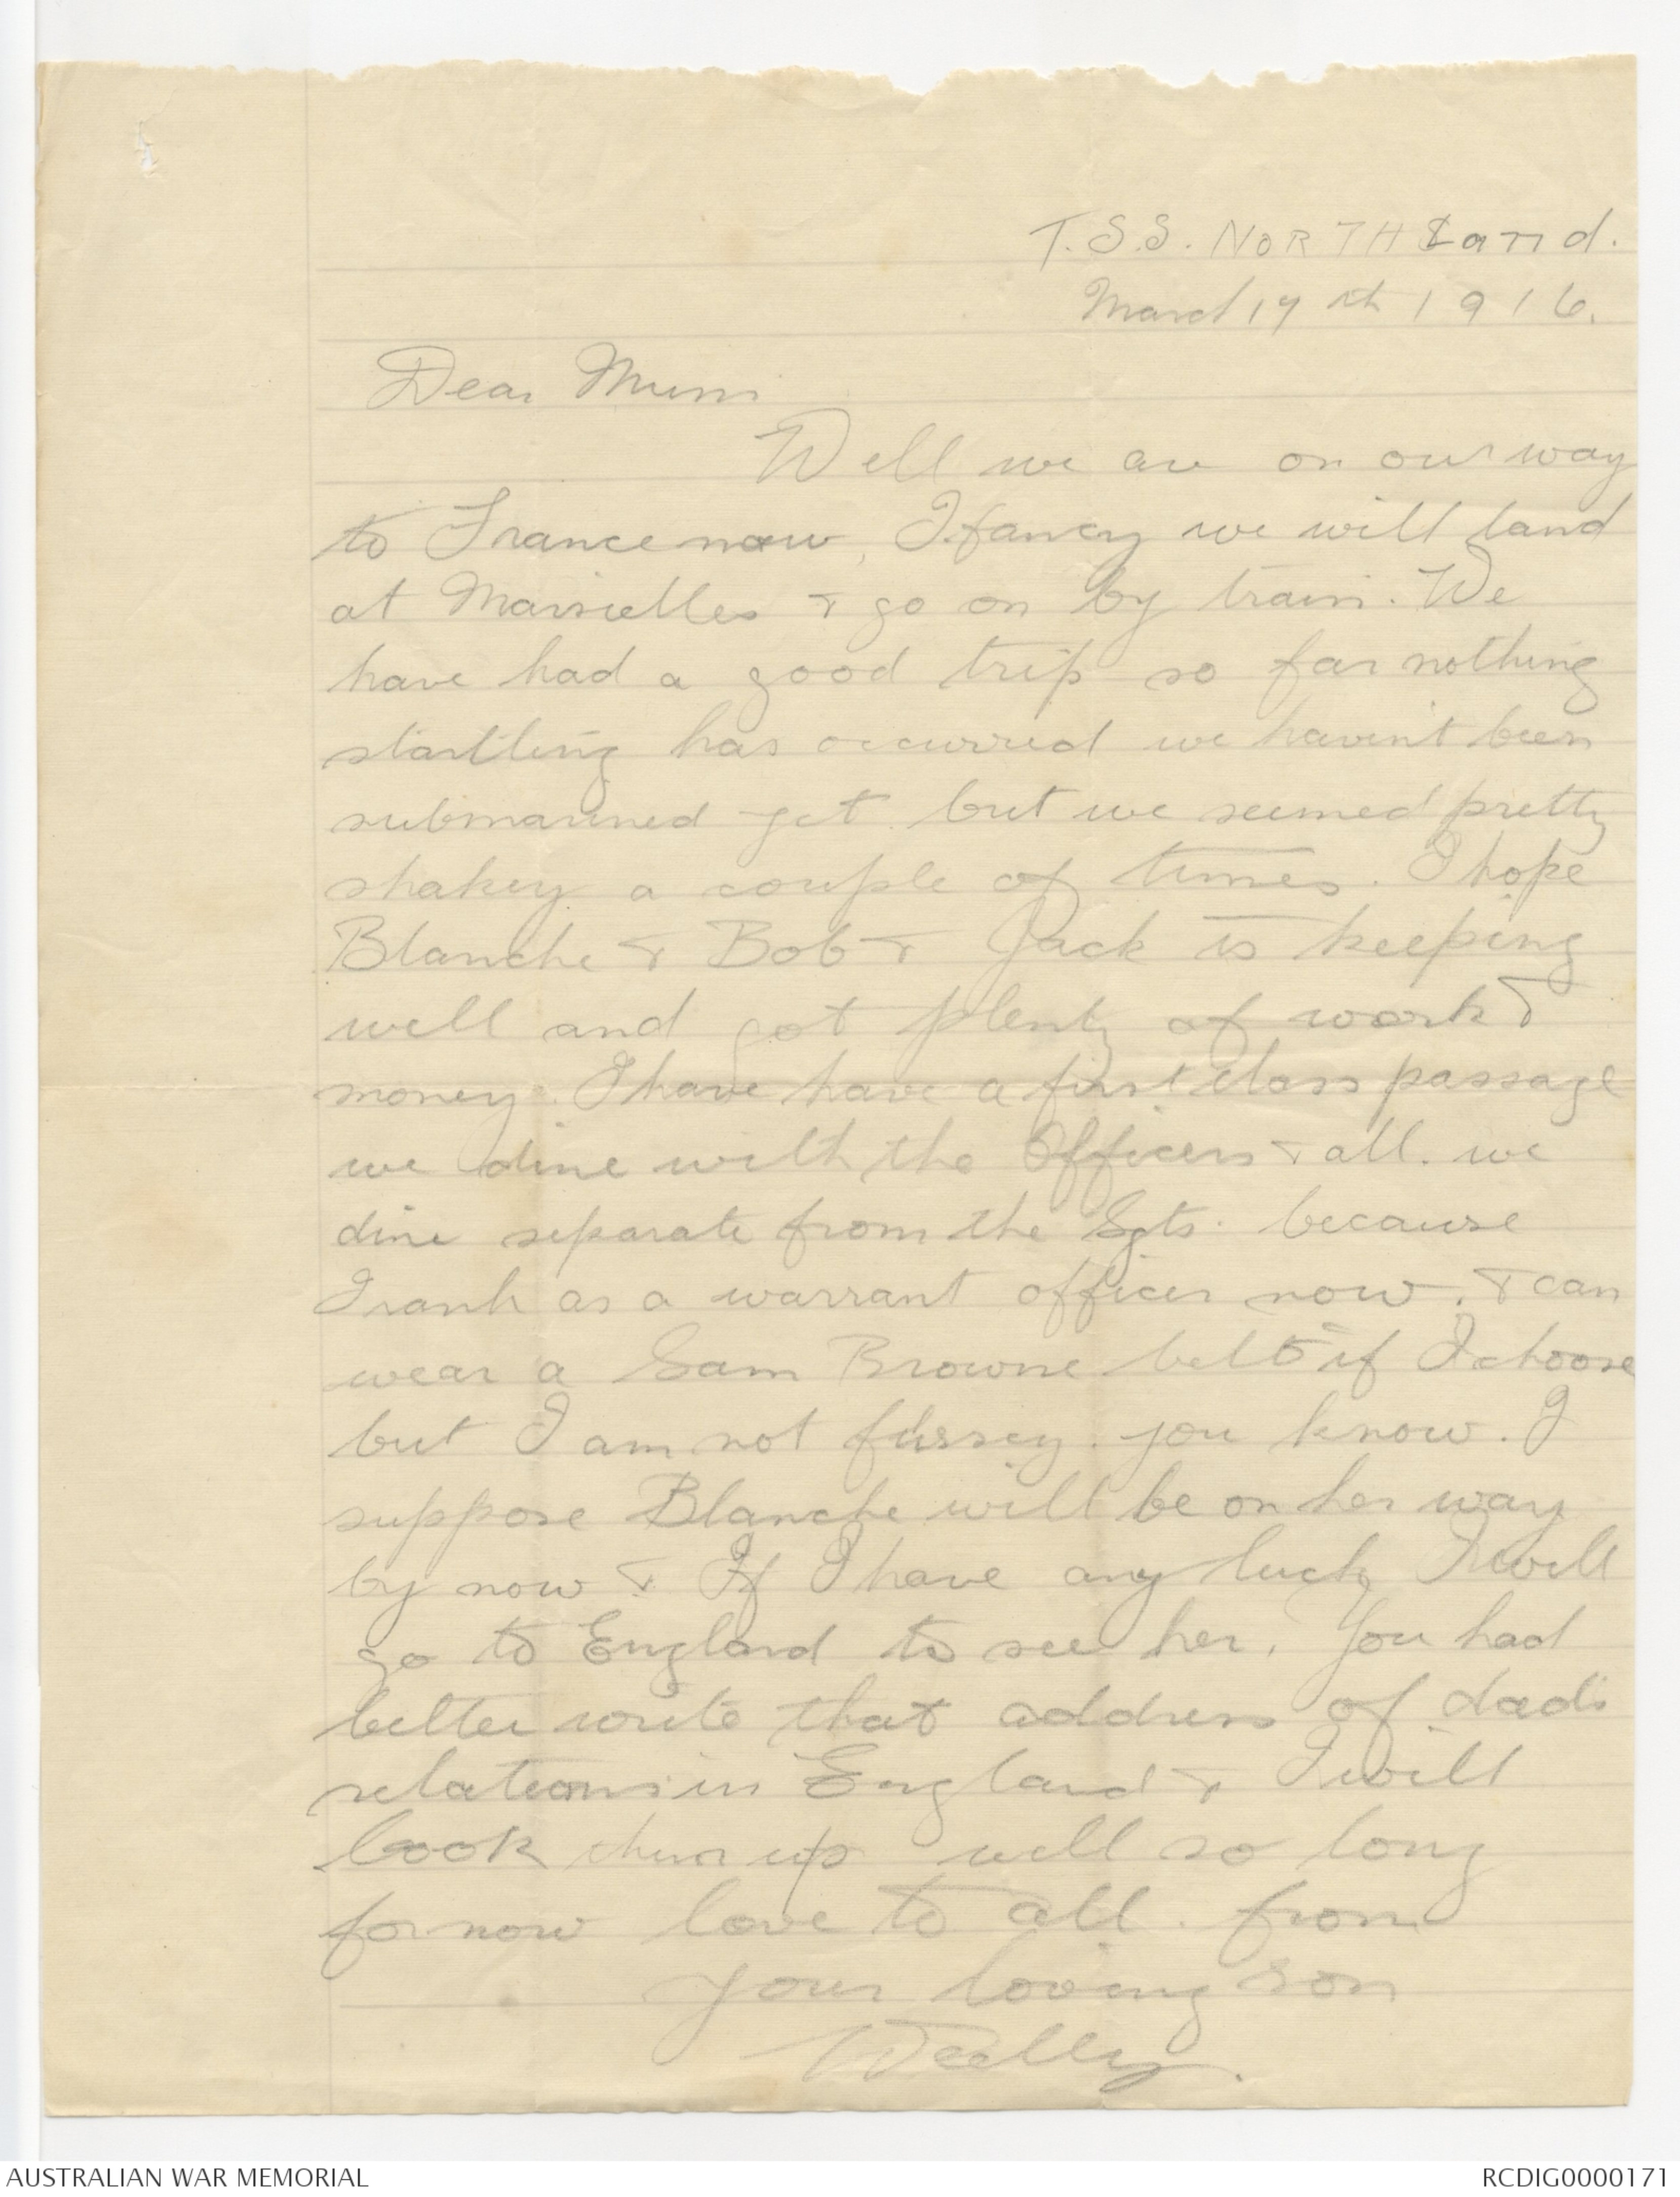 T.S.S. NORTHLand.
March 17th 1916.
Dear Mum
Well we are on our way
to France now, I fancy we will land
at Marsielles & go on by train. We
have had a good trip so far nothing
startling has occurred we havent been
submarined yet. but we seemed pretty
shakey a couple of times. I hope
Blanche & Bob & Jack is keeping
well and got plenty of work &
money. I have have a first class passage
we dine with the Officers & all. we
dine separate from the Sgts. because
I rank as a warrant officer now. & can
wear a Sam Browne belt if I choose
but I am not fussey. you know. I
suppose Blanche will be on her way
by now & If I have any luck I will
go to England to see her. You had
better write that address of dads
relations in England & I will
look them up well so long
for now love to all. from
your loving son
Wally.
AUSTRALIAN WAR MEMORIAL
RCDIG0000171